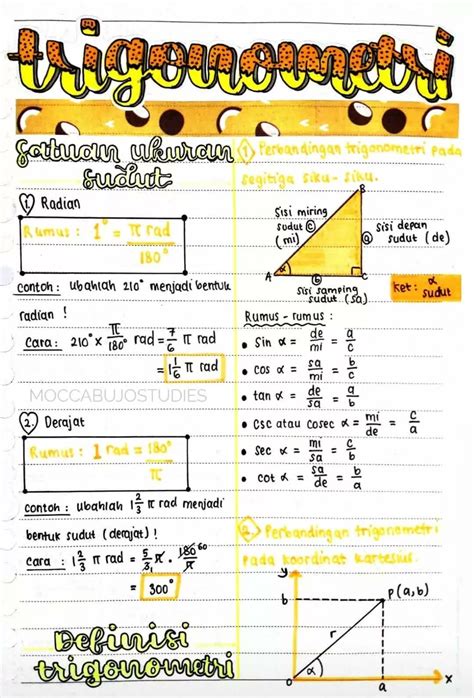 trigonometri
satuan ukuran
sudut
1. Radian
Rumus : 1° = π rad
180°
contoh : ubahlah 210° menjadi bentuk
radian !
Cara : 210° x π/180° rad = 7/6 π rad
= 1 1/6 π rad
MOCCABUJOSTUDIES
2. Derajat
Rumus : 1 rad = 180°
π
contoh : ubahlah 1 2/3 π rad menjadi
bentuk sudut (derajat) !
cara : 1 2/3 π rad = 5/3 π . 180 60/π
1
= 300°
Definisi
trigonometri
1. Perbandingan trigonometri pada
segitiga siku - siku.
B
Sisi miring
sudut c
(mi)
a
sisi depan
sudut (de)
A
α
b
C
sisi samping
sudut (sa)
ket : α
sudut
Rumus - rumus :
• sin α = de/mi = a/c
• cos α = sa/mi = b/c
• tan α = de/sa = a/b
• csc atau cosec α = mi/de = c/a
• sec α = mi/sa = c/b
• cot α = sa/de = b/a
2. Perbandingan trigonometri
pada koordinat kartesius.
y
b
P(a,b)
r
α
0
a
x